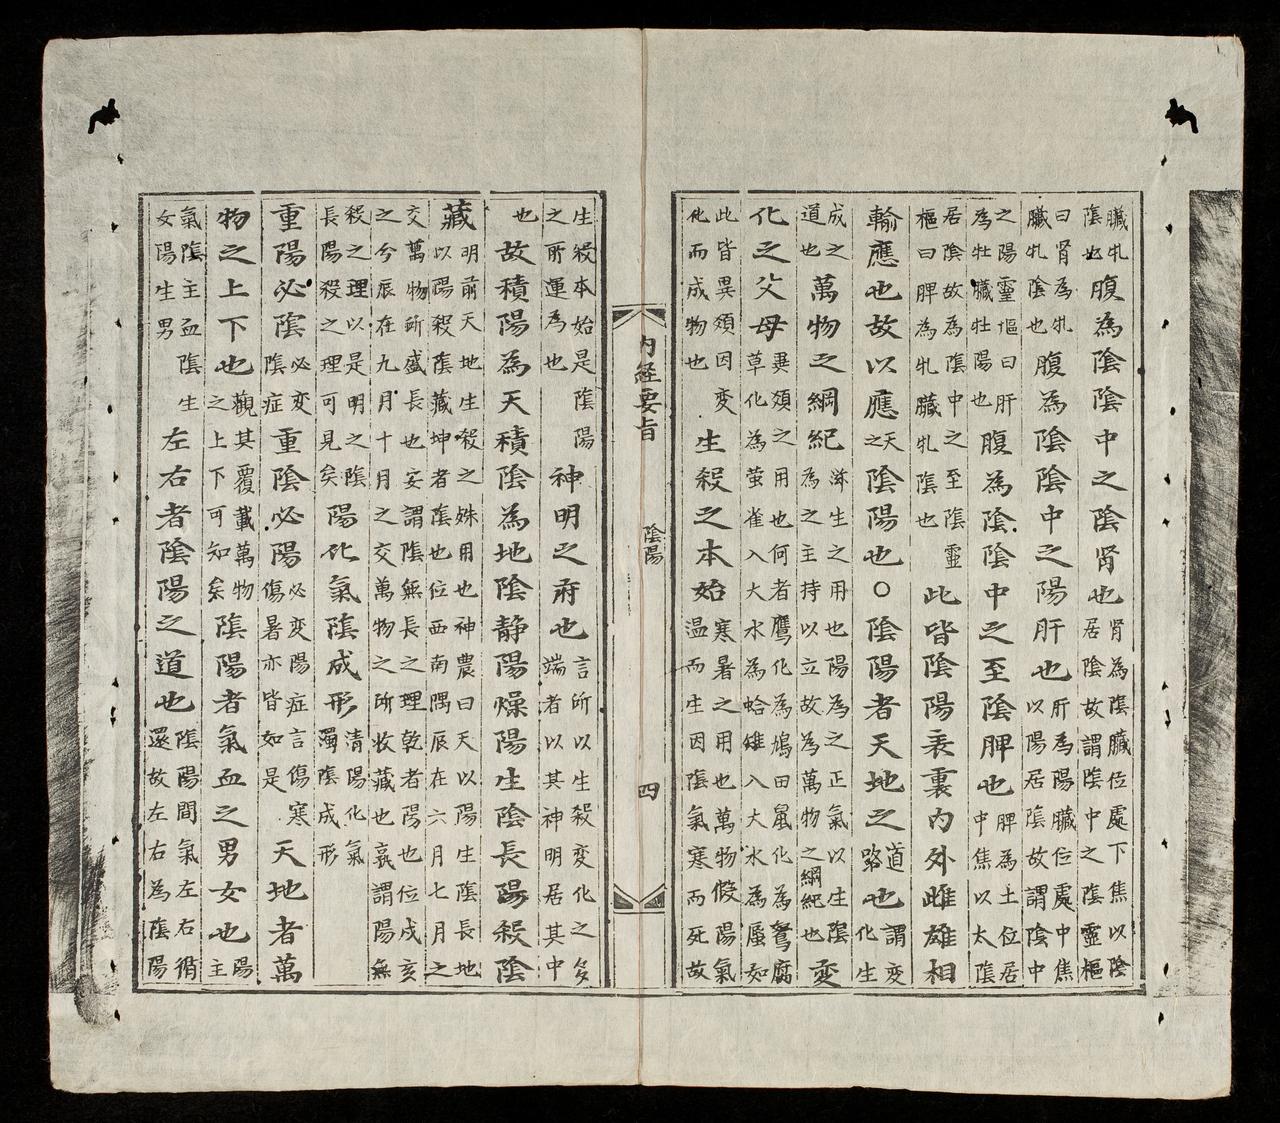 臟牝陰也腹為陰陰中之陰腎也腎為陰臟位處下焦以陰居陰故謂陰中之陰靈樞
曰腎為牝臟牝陰也腹為陰陰中之陽肝也肝為陽臟位處中焦以陽居陰故謂陰中
之陽靈樞曰肝為牡臟牡陽也腹為陰陰中之至陰脾也脾為土位居中焦以太陰
居陰故為陰中之至陰靈樞曰脾為牝臟牝陰也此皆陰陽表裏内外雌雄相
輸應也故以應天之陰陽也○陰陽者天地之道路也謂変化生
成之道也萬物之綱紀滋生之用也陽為之正氣以生陰為之主持以立故為萬物之綱紀也変
化之父母異類之用也何者鷹化為鳩田鼠化為鴽腐草化為萤雀入大水為蛤雉入大水為蜃如
此皆異類因変化而成物也生殺之本始寒暑之用也萬物假陽氣温而生因陰氣寒而死故
内經要旨
陰陽
四
生殺本始是陰陽之所運為也神明之府也言所以生殺変化之多端者以其神明居其中
也故積陽為天積陰為地陰静陽燥陽生陰長陽殺陰
藏明前天地生殺之姝用也神農曰天以陽生陰長地以陽殺陰藏坤者陰也位西南隅辰在六月七月之
交萬物所盛長也安謂陰無長之理乾者陽也位戌亥之兮辰在九月十月之交萬物之所收藏也孰謂陽無
殺之理以是明之陰長陽殺之理可見矣陽化氣陰成形清陽化氣濁陰成形
重陽必陰必变陰症重陰必陽必变陽症言傷寒傷暑亦皆如是天地者萬
物之上下也觀其覆載萬物之上下可知矣陰陽者氣血之男女也陽主
氣陰主血陰生女陽生男左右者陰陽之道也陰陽間氣左右循還故左右為陰陽